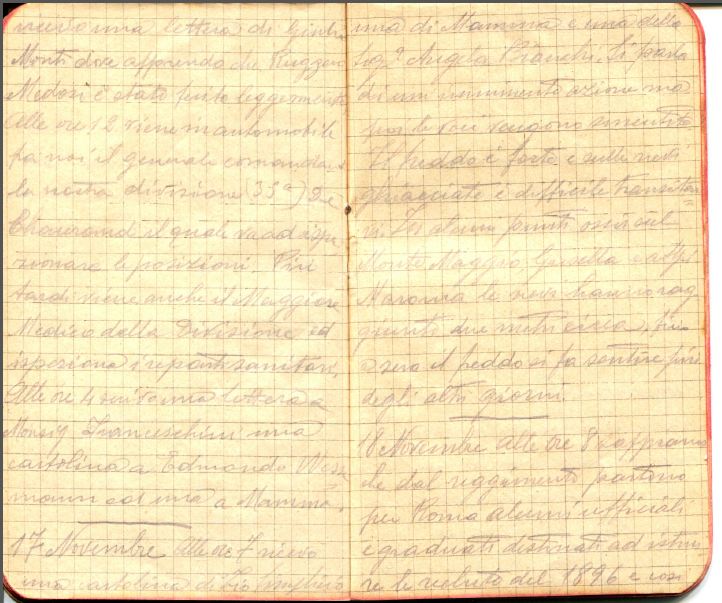 ricevo una lettera di Giulio
Monti dove apprendo che Ruggero
Medosi è stato ferito leggermente
Alle ore 12 viene in automobile
fra noi il generale comandante
la nostra divisione (35ª) De
Chaurand il quale va ad ispe
zionare le posizioni. Più
tardi viene anche il Maggiore
Medico della Divisione ed
ispeziona i reparti sanitari.
Alle ore 4 scrivo una lettera a
Monsig Franceschini una
cartolina a Edmondo
mann ed una a Mamma.
17 Novembre Alle ore 7 ricevo
una cartolina di Zio
una di Mamma e una della
Sigª Angela Bianchi. Si parla
di un imminente azione ma
poi le voci vengono smentite
Il freddo è forte e sulle nevi
ghiacciate è difficile transitar
vi. In alcuni punti ossia sul
Monte Maggio, e
Maronia le nevi hanno rag
giunto due metri circa.
sera il freddo si fa sentire più
degli altri giorni.
18 Novembre Alle ore 8 sappiamo
che dal reggimento partono
per Roma alcuni ufficiali
e graduati destinati ad istrui
re le reclute del 1896 e così